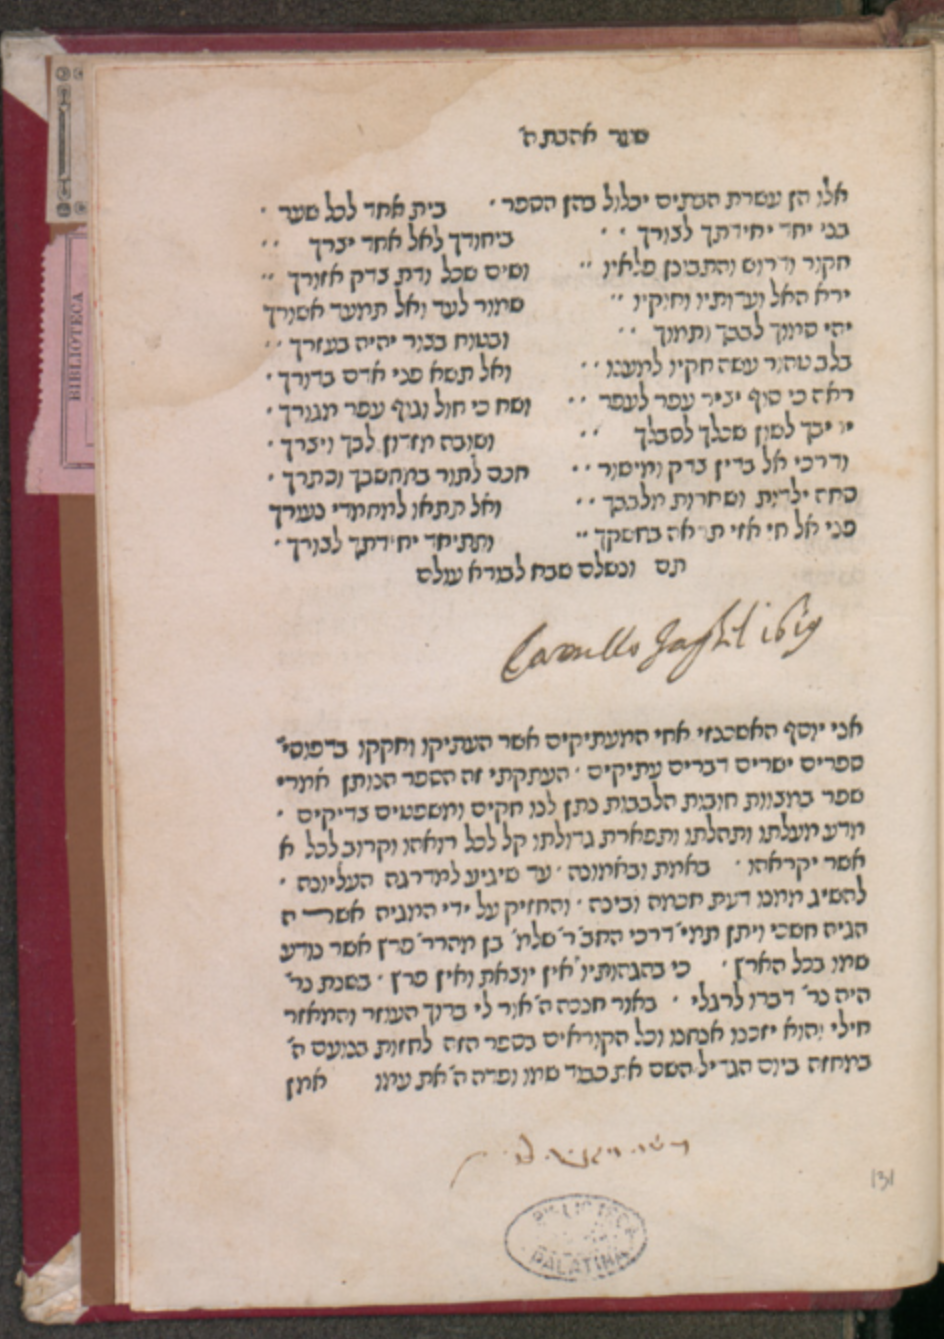 שער אהבת ה'
אלו הן עשרת הבתים יכלול בהן הספר · בית אחד לכל שער ·
בני יחד יחידתך לצורך · · ביחודך לאל אחד יצרך · ·
חקור ודרוש והתבונן פלאיו · · ושים שכל ודת צדק אזורך · ·
ירא האל ועדותיו וחוקיו · · שמור לעד ואל תמעד אשורך
יהי סמוך לבבך ותמוך · · ובטוח בצור יהיה בעזרך · ·
בלב טהור עשה חקיו למענו · · ואל תשא פני אדם בדורך ·
ראה כי סוף יציר עפר לעפר · · ושח כי חול וגוף עפר מגורך ·
לשון שכלך לסכלך · · ושובה מזדון לבך ויצרך ·
ודרכי אל בדין צדק ומישור · · חכם לתור במחשבך ובתרך ·
מחה ילדות ושחרות מלבבך · · ואל תתאו למחמדי נעורך
פני אל חי אזי תראה בחשקך · · ותתיחד יחידתך לצורך ·
תם ונשלם שבח לבורא עולם
Camillo Jaghel 1619
אני יוסף האשכנזי אחי המעתיקים אשר העתיקו וחקקו בדפוסי'
ספרים ישרים דברים עתיקים · העתקתי זה הספר הנותן אמרי
שפר במצוות חובות הלבבות נתן לנו חקים ומשפטים צדיקים ·
מדע מעלתו ותהלתו ותפארת גדולתו קל לכל רואהו וקרוב לכל א
אשר יקראהו · באמת ובאמונה · עד שיגיע למדרגה העליונה ·
להשיג ממנו דעת חכמה ובינה · והחזיק על ידי המגיה אשר ה
הגיה חשכי ויתן תמי' דרכי החב'ר' שלמ' בן מהרר' פרץ אשר נודע
שמו בכל הארץ · כי בהגהותיו אין יוצאת ואין פרץ · בשנת נר'
היה נר' דברו לרגלי · באור חנכה ה' אור לי ברוך העוזר והמאזר
חילי והוא יזכנו אנחנו וכל הקוראים בספר הזה לחזות בנועם ה'
במחזה ביום הגדיל השם את כבוד שמו ופדה ה' את עמו אמן
131
BIBLIOTECA
PALATINA
BIBLIOTECA